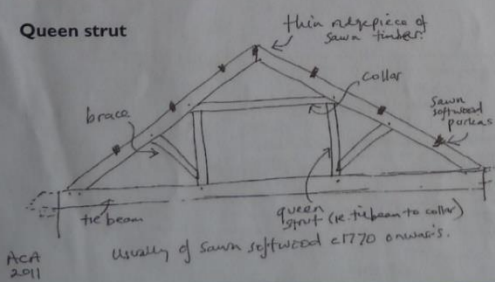 Queen strut
thin ridgepiece of
sawn timber.
collar
brace
sawn
softwood
purlins
tie beam
queen
strut (ie. tiebeam to collar)
Usually of sawn softwood c1770 onwards.
ACA
2011